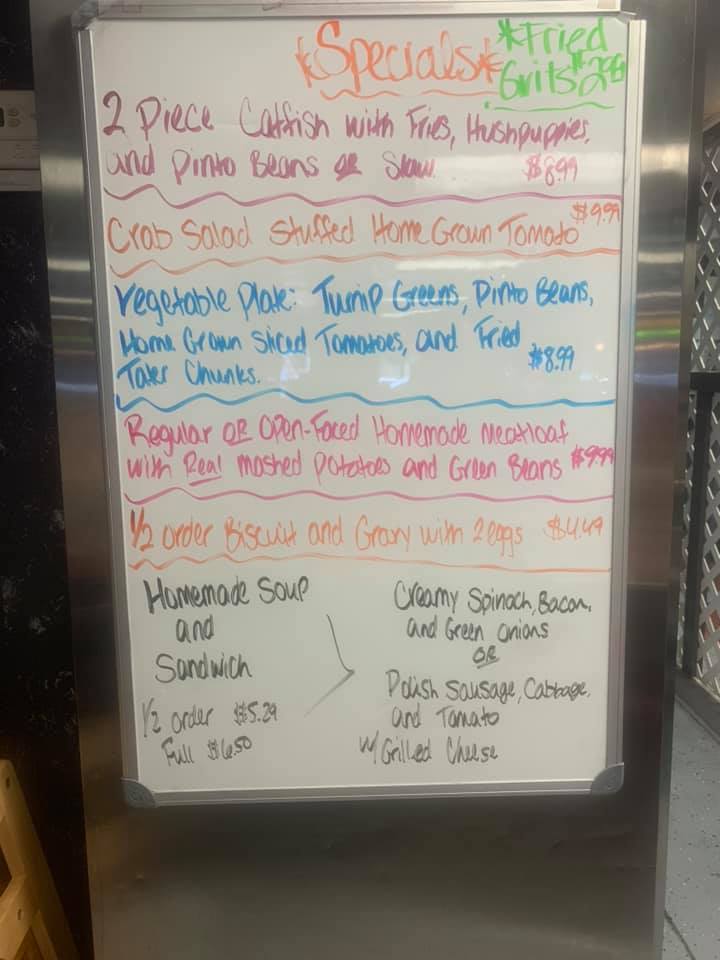 *Specials*
*Fried
Grits $2.99
2 Piece Catfish with Fries, Hushpuppies,
and Pinto Beans OR Slaw $8.99
Crab Salad Stuffed Home Grown Tomato $9.99
Vegetable Plate: Turnip Greens, Pinto Beans,
Home Grown Sliced Tomatoes, and Fried
Tater Chunks. $8.99
Regular OR Open-Faced Homemade Meatloaf
with Real mashed Potatoes and Green Beans $9.99
1/2 order Biscuit and Gravy with 2 eggs $4.49
Homemade Soup
and
Sandwich
1/2 order $5.29
Full $6.50
Creamy Spinach, Bacon,
and Green Onions
OR
Polish Sausage, Cabbage,
and Tomato
w/ Grilled Cheese